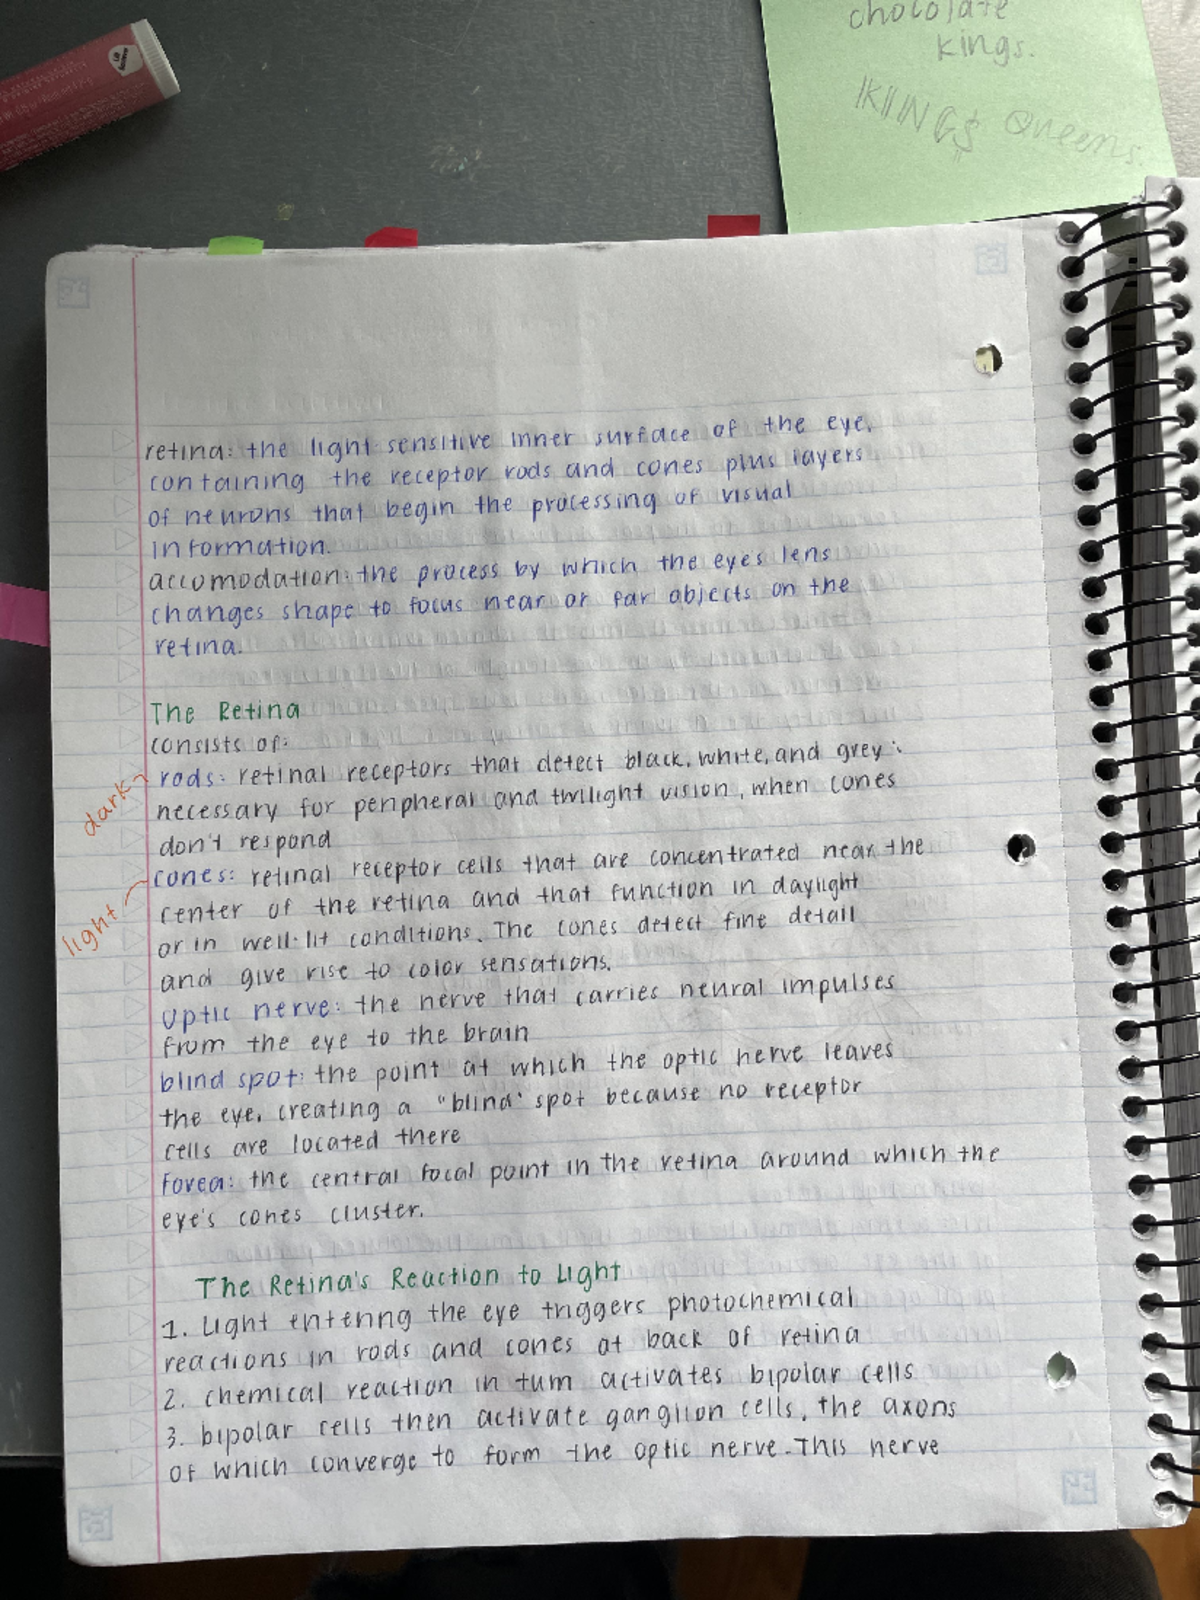 chocolate
kings.
KINGS Queens
retina: the light sensitive inner surface of the eye,
containing the receptor rods and cones plus layers
of neurons that begin the processing of visual
information.
accomodation: the process by which the eyes lens
changes shape to focus near or far objects on the
retina.
The Retina
consists of:
rods: retinal receptors that detect black, white, and grey:
necessary for peripheral and twilight vision, when cones
don't respond
dark
cones: retinal receptor cells that are concentrated near the
center of the retina and that function in daylight
or in well-lit conditions. The cones detect fine detail
and give rise to color sensations.
light
optic nerve: the nerve that carries neural impulses
from the eye to the brain
blind spot: the point at which the optic nerve leaves
the eye, creating a "blind" spot because no receptor
cells are located there
Fovea: the central focal point in the retina around which the
eye's cones cluster.
The Retina's Reaction to Light
1. Light entering the eye triggers photochemical
reactions in rods and cones at back of retina
2. chemical reaction in turn activates bipolar cells
3. bipolar cells then activate ganglion cells, the axons
of which converge to form the optic nerve. This nerve